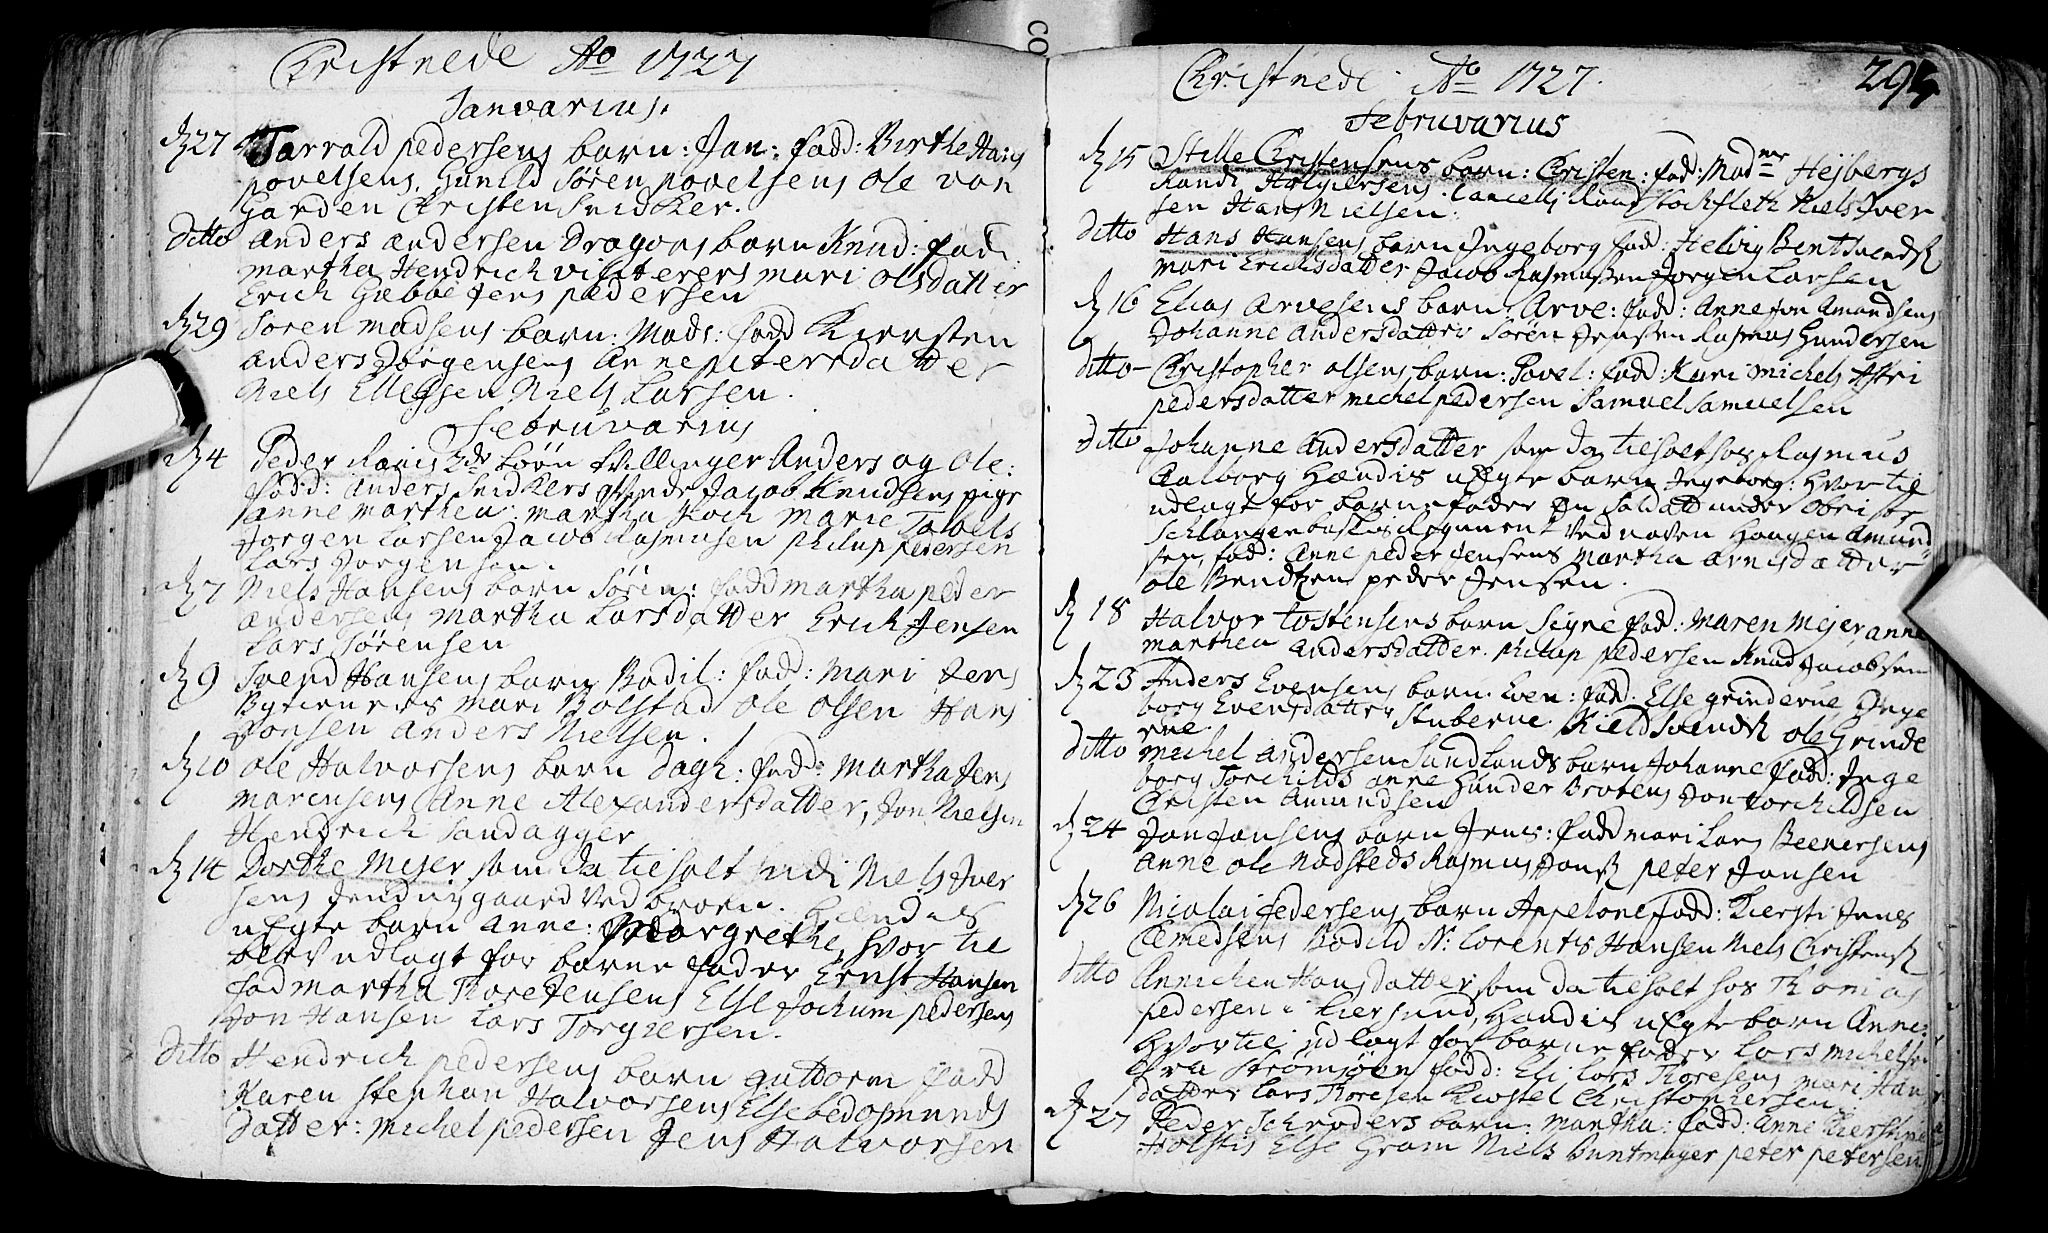 Christnede Ao 1727
Januarius.
d 27 Tarrald pedersens barn: Jan: fadd: Birthe Hans
povelsens. Gunild Søren povelsens Ole von
Garden Christen Snidker.
Ditto Anders Andersen Dragons barn Knud: fad:
martha Hendrich visiterers mari olsdatter
Erich Gæbbe Jens pedersen
d 29 Søren madsens barn: Mads: fadd Kiersten
Anders Jørgensens Anne petersdatter
Niels Ellefsen Niels Larsen.
Februvarius
d 4 Peder Ravis 2de børn tvillinger Anders og Ole:
fadd: Anders Snidkers Jacob Knudsens pige
anne marthea: martha Koch marie Tobels
Jørgen Larsen Jacob Rasmusen philup pedersen
Lars Jørgensen.
d 7 Niels Hansens barn Søren: fadd martha peder
andersens martha Larsdatter Erich Jensen
Lars Sørensen
d 9 Svend Hansens barn Bodil: fadd: mari Jens
Bytieners mari Bolstad Ole Olsen Hans
Jonsen Anders Nielsen.
d 10 Ole Halvorsens barn Dagh: fadd: Martha Jens
marensens Anne Alexandersdatter, Jon Nielsen
Hendrich Sandagger
d 14 Dorthe Mejer som da tilholt udi Niels Iver
sens ved broen. Hendis
uEgte barn Anne: Margrethe, hvor til
blev udlagt for barne fader Ernst Hansen
fad martha Thore Jensens Else Jochum pedersens
Jon Hansen Lars Torgiersen.
Ditto Hendrich pedersens barn guttorm fadd
Karen Stephan Halvorsens Elsebe dosmunds
datter: Michel pedersen Jens Halvorsen
Christnede Ao 1727.
Februvarius
d 15 Stille Christensens barn: Christen: fad: Madme Hejbergs
Randi Holgiersens. Cancellj Raad Stochfleth Niels Iver
sen Hans Nielsen.
Ditto Hans Hansens barn Ingeborg fad: Helvig Bent Svends
mari Erichsdatter Jacob Rasmussen Jørgen Larsen
d 16 Elias Arvesens barn: Arve: fadd: Anne Jon Amundsens
Johanne Andersdatter Søren Jensen Rasmus Gundersen
ditto Christopher olsens barn: Povel: fadd: Kari michels Astri
pedersdatter michel pedersen Samuel Samuelsen
ditto Johanne Andersdatter som da tilholt hos Rasmus
Aalborg Hendis uEgte barn Ingeborg: Hvor til
udlagt for barnefader En Soldatt under Obrister
Schlangenbuschs Regiment ved naven Haagen Amund
sen, fadd: Anne peder Jensens Martha Arnisdatter
ole Bendtzen peder Jensen.
d 18 Halvor Tostensens barn Signe fad: Maren Mejer anne
marthea Andersdatter. philup pedersen Knud Jacobsen
d 23 Anders Evensens barn. Even: fad. Else grinderne Inge
borg Evensdatter Stuberne. Kield Svends ole Grinde
rne.
ditto michel andersen Sandlands barn Johanne fadd: Inge
borg Torchilds anne Gunder Brotens Jon Torchildsen
Christen Amundsen
d 24 Jan Jansens barn Jens: fadd mari Lars Beenersens
Anne ole Nodskeds Rasmus Jans peter Jansen
d 26 Nicolai Pedersens barn Appelone fadd: Kiersti Jens
Clemedsens Bodild N: Lorents Hansen Niels Christens
ditto Annichen Hansdatter som da tilholt hos Thomas
pedersen i Kiersund, Handis uEgte barn Anne:
hvor til udlagt for barne fader Lars Michelsen
fra Strømsøen fadd: Eli Lars Thoresens mari Han
datter Lars Thoresen Kiostel Christophersen
d 27 Peder Schrøders barn: Martha: fadd: Anne Kierstine
Holstis Else Gram Niels Buntmager peter petersen